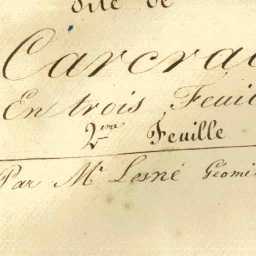 dite de
Carcra
En trois Feuil
2eme Feuille
Par Mr Lesné Géomè